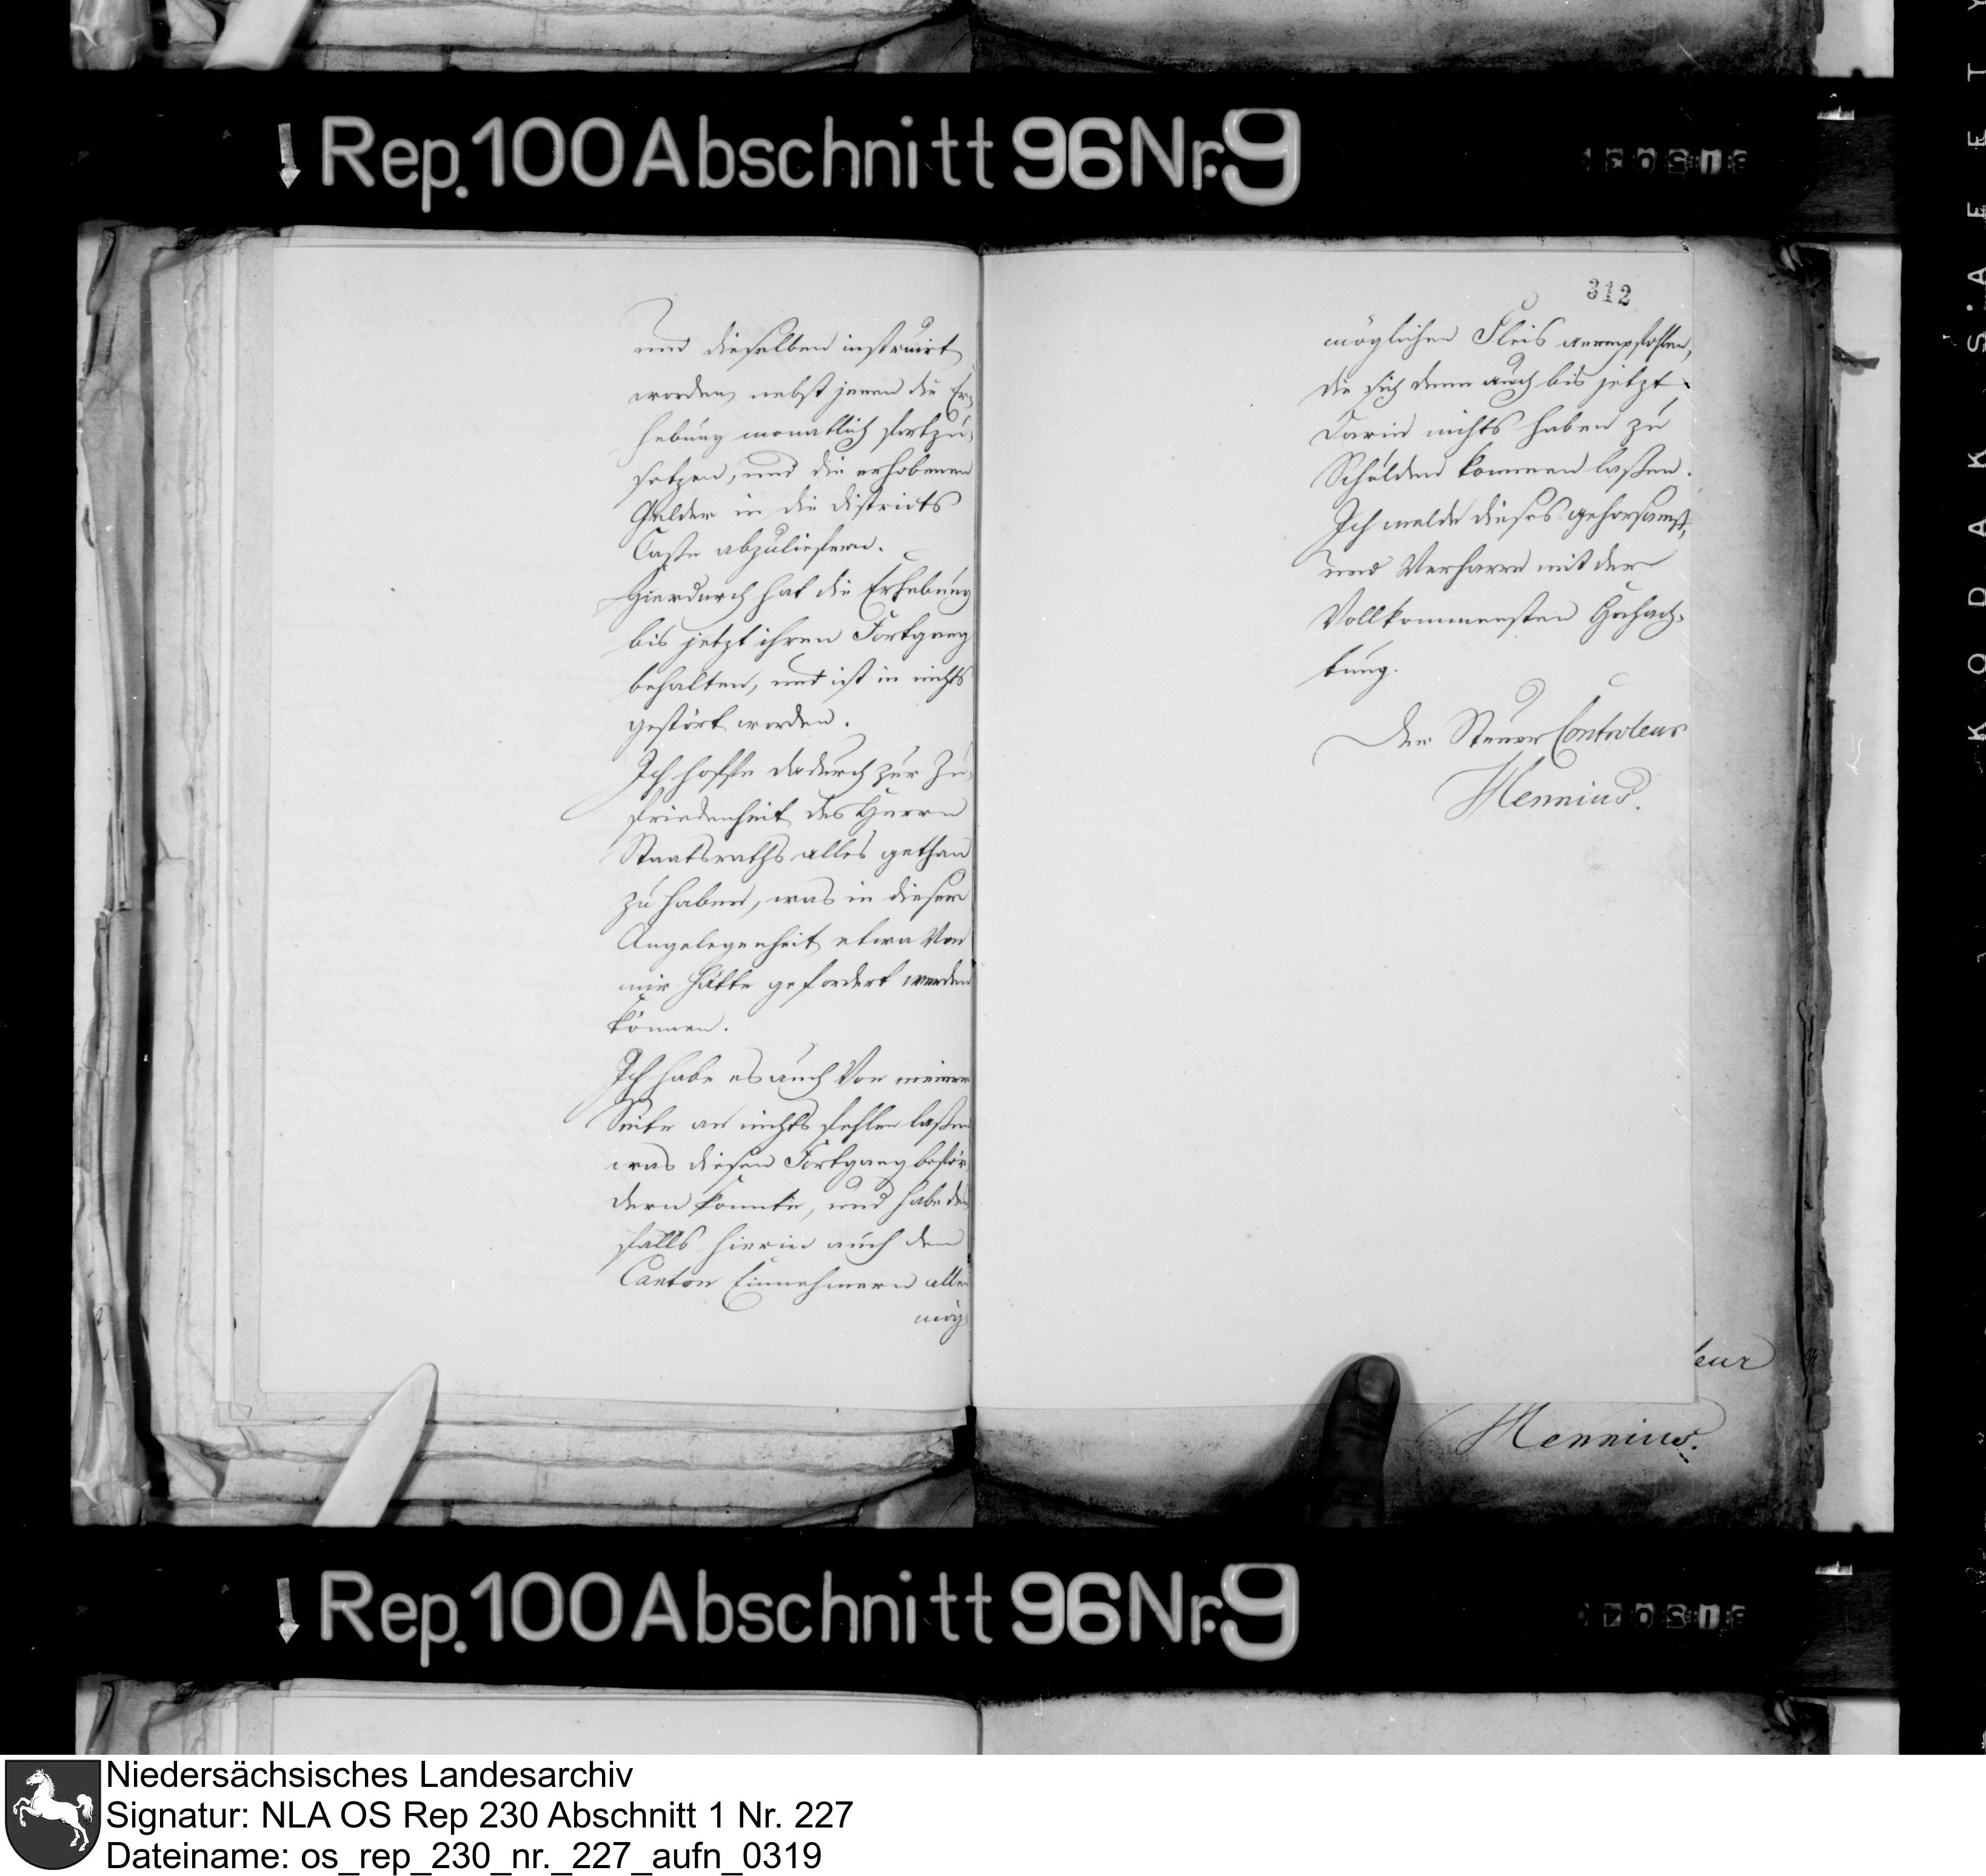 Rep. 100 Abschnitt 96 Nr. 9
und dieselben instruirt
worden, nebst jenen die Er-
hebung monatlich fortzu-
setzen, und die erhobenen
Gelder in die Districts
Casse abzuliefern.
Hierdurch hat die Erhebung
bis jetzt ihren Fortgang
behalten, und ist in nichts
gestört worden.
Ich hoffe dadurch zur Zu-
friedenheit des Herrn
Staatsraths alles gethan
zu haben, was in dieser
Angelegenheit etwa von
mir hätte gefordert werden
können.
Ich habe es auch von meiner
Seite an nichts fehlen laßen
was diesen Fortgang beför-
dern konnte, und habe
falls hierin auch den
Canton Einnehmern allen
mög-
312
möglichen Fleis anempfohlen,
die sich denn auch bis jetzt
darin nichts haben zu
Schulden kommen laßen.
Ich melde dieses gehorsamst,
und verharre mit der
Vollkommensten Hochach-
tung.
Der Steuer Controleur
Hennius.
leur
Hennius.
Rep. 100 Abschnitt 96 Nr. 9
KODAK SAFETY
Niedersächsisches Landesarchiv
Signatur: NLA OS Rep 230 Abschnitt 1 Nr. 227
Dateiname: os_rep_230_nr._227_aufn_0319